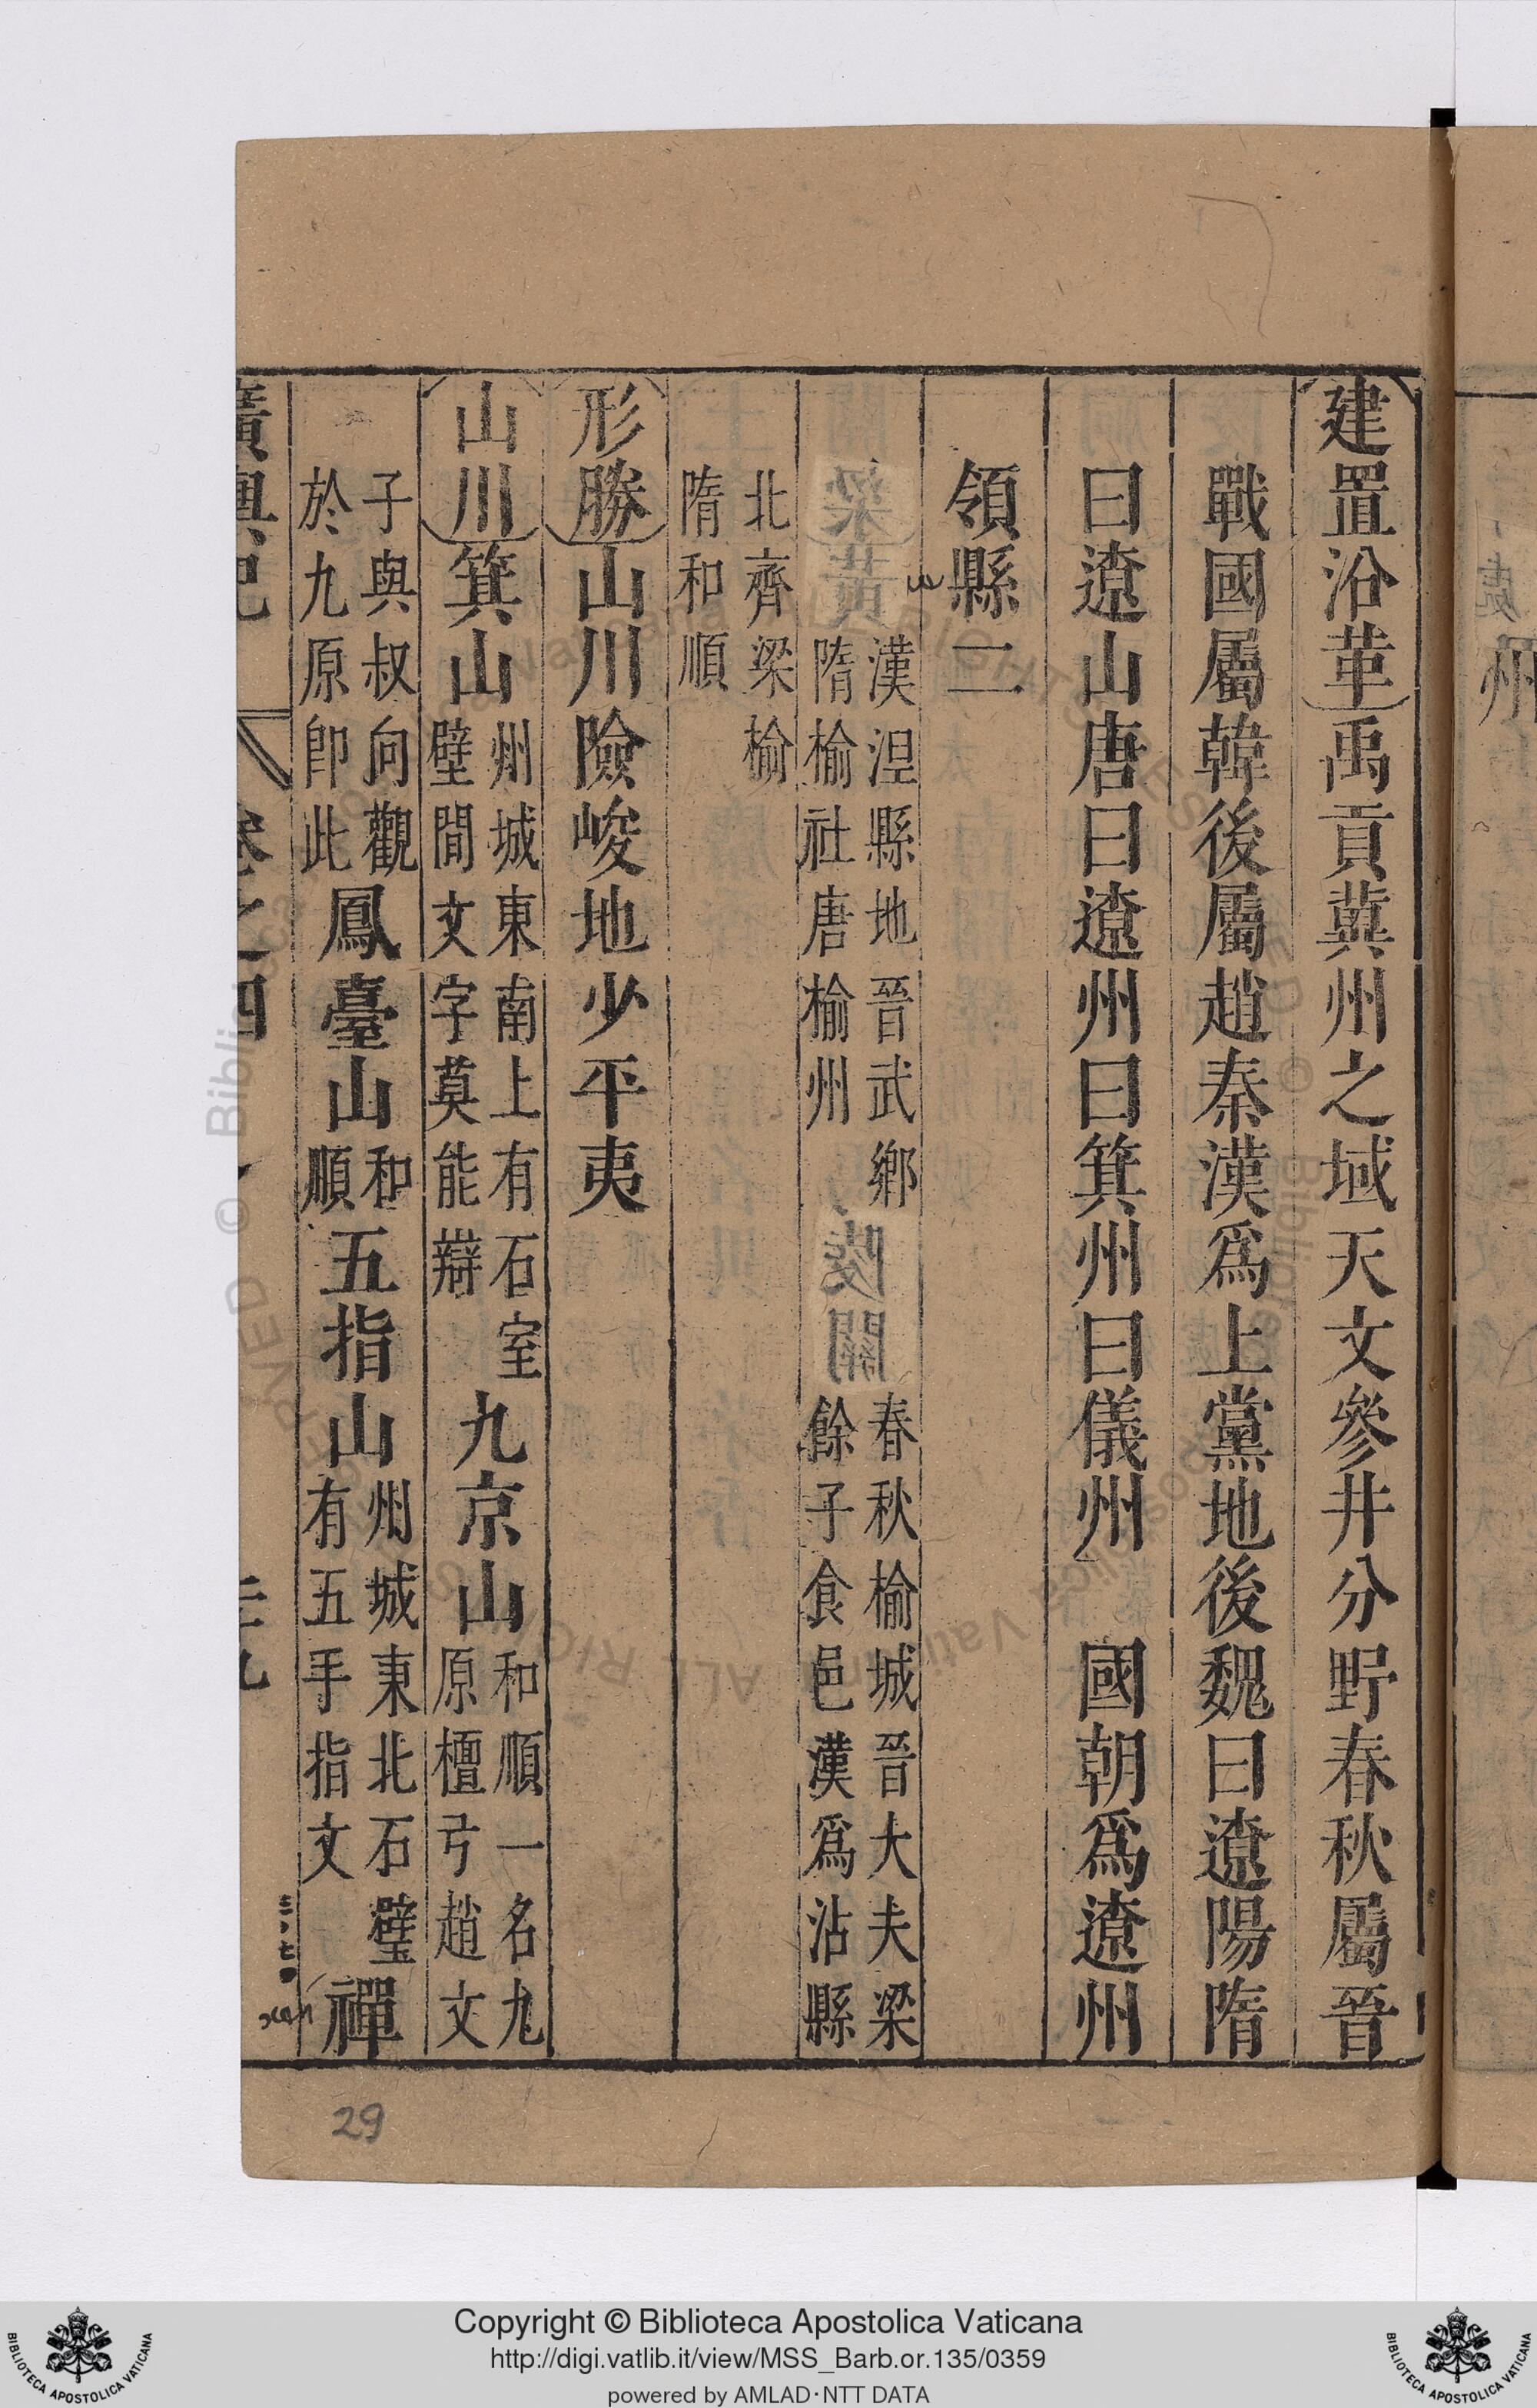 建置沿革禹貢冀州之域天文參井分野春秋屬晉
戰國屬韓後屬趙秦漢爲上黨地後魏曰遼陽隋
曰遼山唐曰遼州曰箕州曰儀州國朝爲遼州
領縣二
漢涅縣地晉武鄉
隋榆社唐榆州
春秋榆城晉大夫梁
餘子食邑漢爲沾縣
北齊梁榆
隋和順
形勝山川險峻地少平夷
山川箕山
州城東南上有石室
壁間文字莫能辯
九京山
和順一名九
原檀弓趙文
子與叔向觀
於九原卽此
鳳臺山
和
順
五指山
州城東北石璧
有五手指文
禪
廣輿記
卷之四
29
Copyright © Biblioteca Apostolica Vaticana
http://digi.vatlib.it/view/MSS_Barb.or.135/0359
powered by AMLAD·NTT DATA
BIBLIOTECA APOSTOLICA VATICANA
BIBLIOTECA APOSTOLICA VATICANA